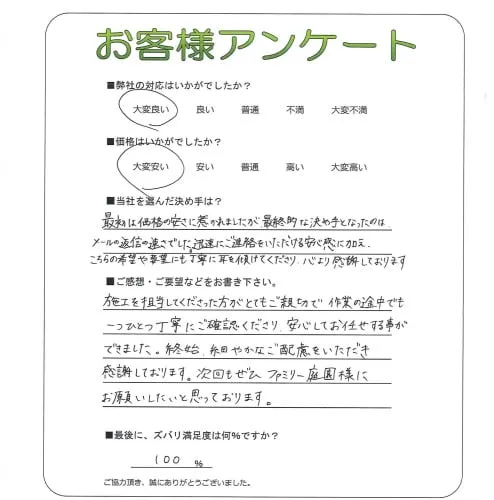 お客様アンケート
■弊社の対応はいかがでしたか？
大変良い 良い 普通 不満 大変不満
■価格はいかがでしたか？
大変安い 安い 普通 高い 大変高い
■当社を選んだ決め手は？
最初は価格の安さに惹かれましたが、最終的な決め手となったのは
メールの返信の速さでした。迅速にご連絡をいただける安心感に加え、
こちらの希望や事業にも丁寧に耳を傾けてくださり、心より感謝しております
■ご感想・ご要望などをお書き下さい。
施工を担当してくださった方がとてもご親切で 作業の途中でも
一つひとつ丁寧にご確認くださり、安心してお任せする事が
できました。終始、細やかなご配慮をいただき
感謝しております。次回もぜひ ファミリー庭園様に
お願いしたいと思っております。
■最後に、ズバリ満足度は何%ですか？
100 %
ご協力頂き、誠にありがとうございました。